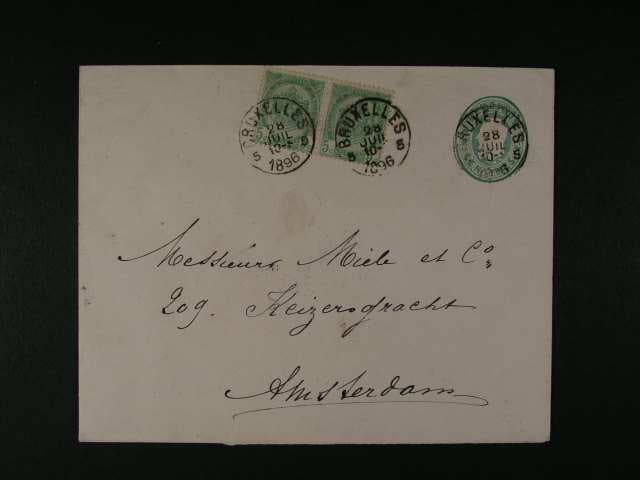 BRUXELLES 5
28
JUIL
5 1896
BRUXELLES 5
28
JUIL
5 1896
BRUXELLES 5
28
JUIL
Messieurs Miele et Co
209. Keizersgracht
Amsterdam